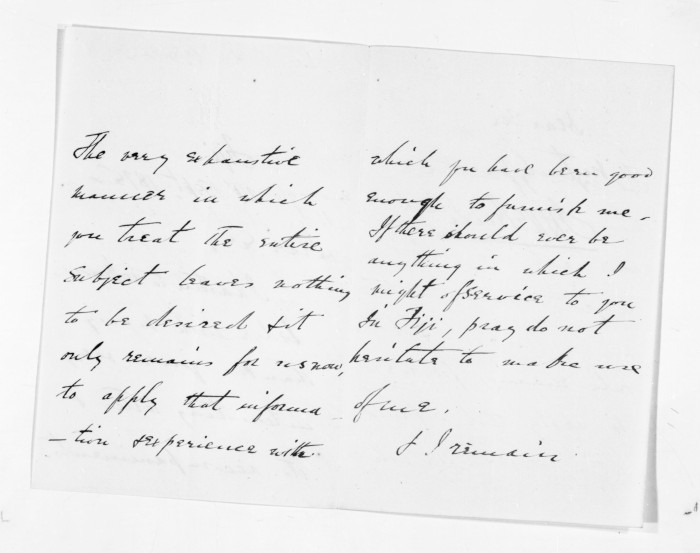 The very exhaustive
manner in which
you treat the entire
subject leaves nothing
to be desired & it
only remains for us now,
to apply that informa
-tion & experience with
which you have been good
enough to furnish me.
If there should ever be
anything in which I
might of service to you
in Fiji, pray do not
hesitate to make use
of me.
& I remain